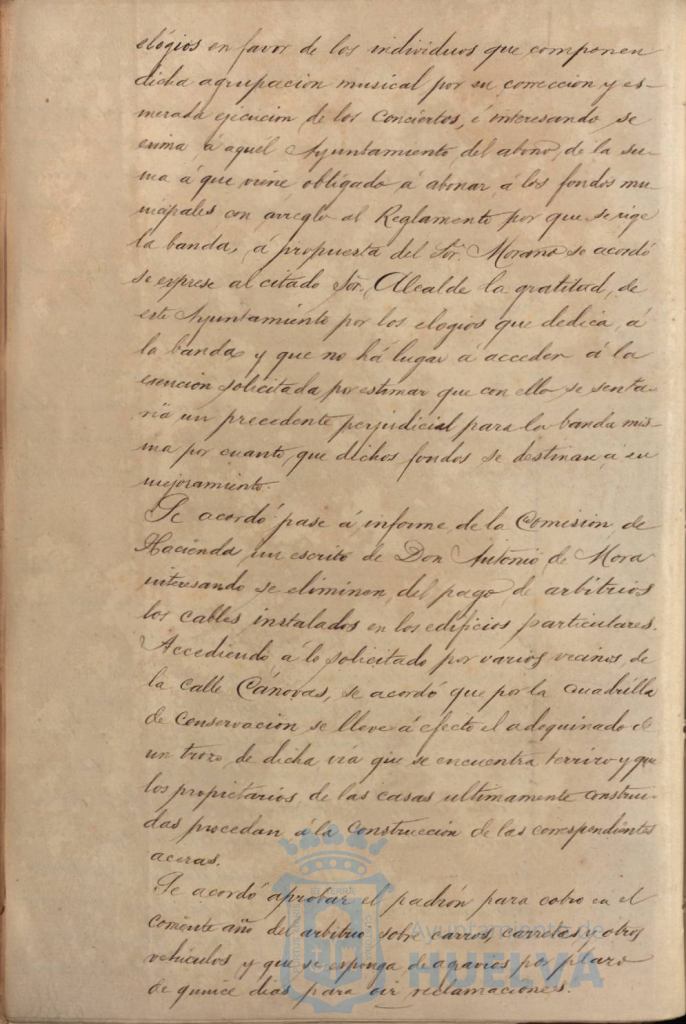 elógios en favor de los individuos que componen
dicha agrupacion musical por su correccion y es-
merada ejecucion de los conciertos, é interesando se
exima á aquél Ayuntamiento del abono de la su-
ma á que viene obligado á abonar á los fondos mu-
nicipales con arreglo al Reglamento por que se rige
la banda, á propuesta del Sor. Morano se acordó
se exprese al citado Sor. Alcalde la gratitud de
este Ayuntamiento por los elogios que dedica á
la banda y que no há lugar á acceder á la
exención solicitada por estimar que con ello se senta-
ria un precedente perjudicial para la banda mis-
ma por cuanto que dichos fondos se destinan á su
mejoramiento.
Se acordó pase á informe de la Comisión de
Hacienda un escrito de Don Antonio de Mora
interesando se eliminen del pago de arbitrios
los cables instalados en los edificios particulares.
Accediendo á lo solicitado por varios vecinos de
la calle Cánovas, se acordó que por la cuadrilla
de conservacion se lleve á efecto el adoquinado de
un trozo de dicha via que se encuentra terrizo y que
los propietarios de las casas ultimamente construi-
das procedan á la construccion de las correspondientes
aceras.
Se acordó aprobar el padrón para cobro en el
corriente año del arbitrio sobre carros, carretas y otros
vehículos y que se esponga de agravios por plazo
de quince dias para oir reclamaciones.
Ayuntamiento de
HUELVA